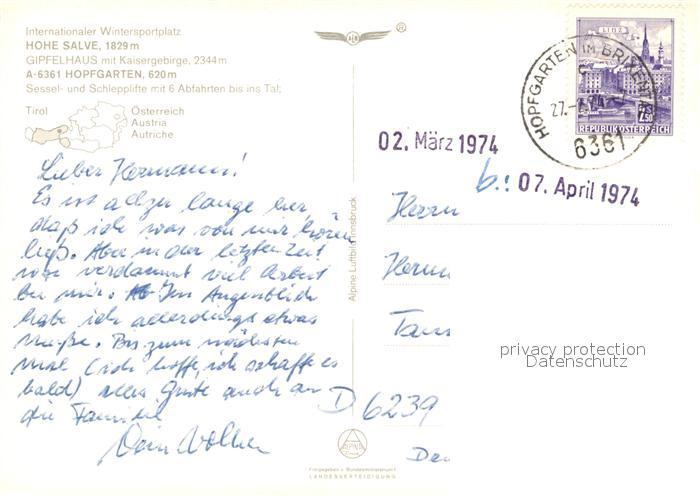 Internationaler Wintersportplatz
HOHE SALVE, 1829 m
GIPFELHAUS mit Kaisergebirge, 2344 m
A-6361 HOPFGARTEN, 620 m
Sessel- und Schlepplifte mit 6 Abfahrten bis ins Tal;
Tirol
Österreich
Austria
Autriche
Lieber Hermann!
Es ist allzu lange her,
daß ich was von mir hören
ließ. Aber in der letzten Zeit
war verdammt viel Arbeit
bei mir. Im Augenblick
habe ich allerdings etwas
Muße. Bis zum nächsten
Mal (ich hoffe, ich schaffe es
bald) alles Gute auch an
die Familie
Dein Volker
Alpine Luftbild Innsbruck
LINZ
2.50
REPUBLIK ÖSTERREICH
HOPFGARTEN IM BRIXENTAL
6361
02. März 1974
b.: 07. April 1974
Herrn
Herm
Tau
privacy protection
Datenschutz
D 6239
ALPINE
Freigegeben v. Bundesministerium f.
LANDESVERTEIDIGUNG